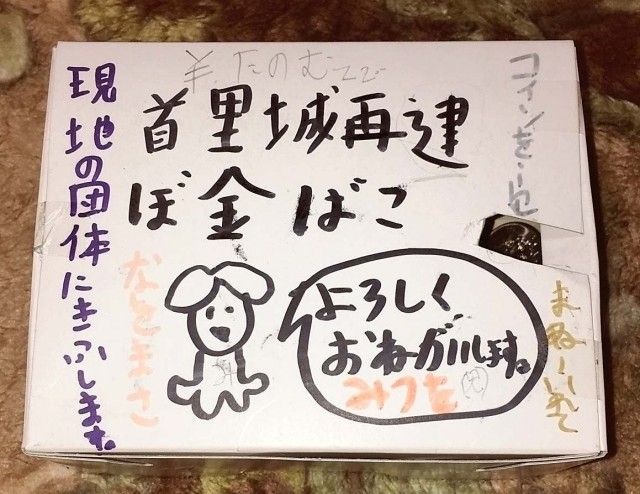 ¥たのむてで
首里城再建
ぼ金ばこ
現地の団体にきふします。
よろしく
おねがいします。
みつを
なをまさ
コインを
まねーいれて